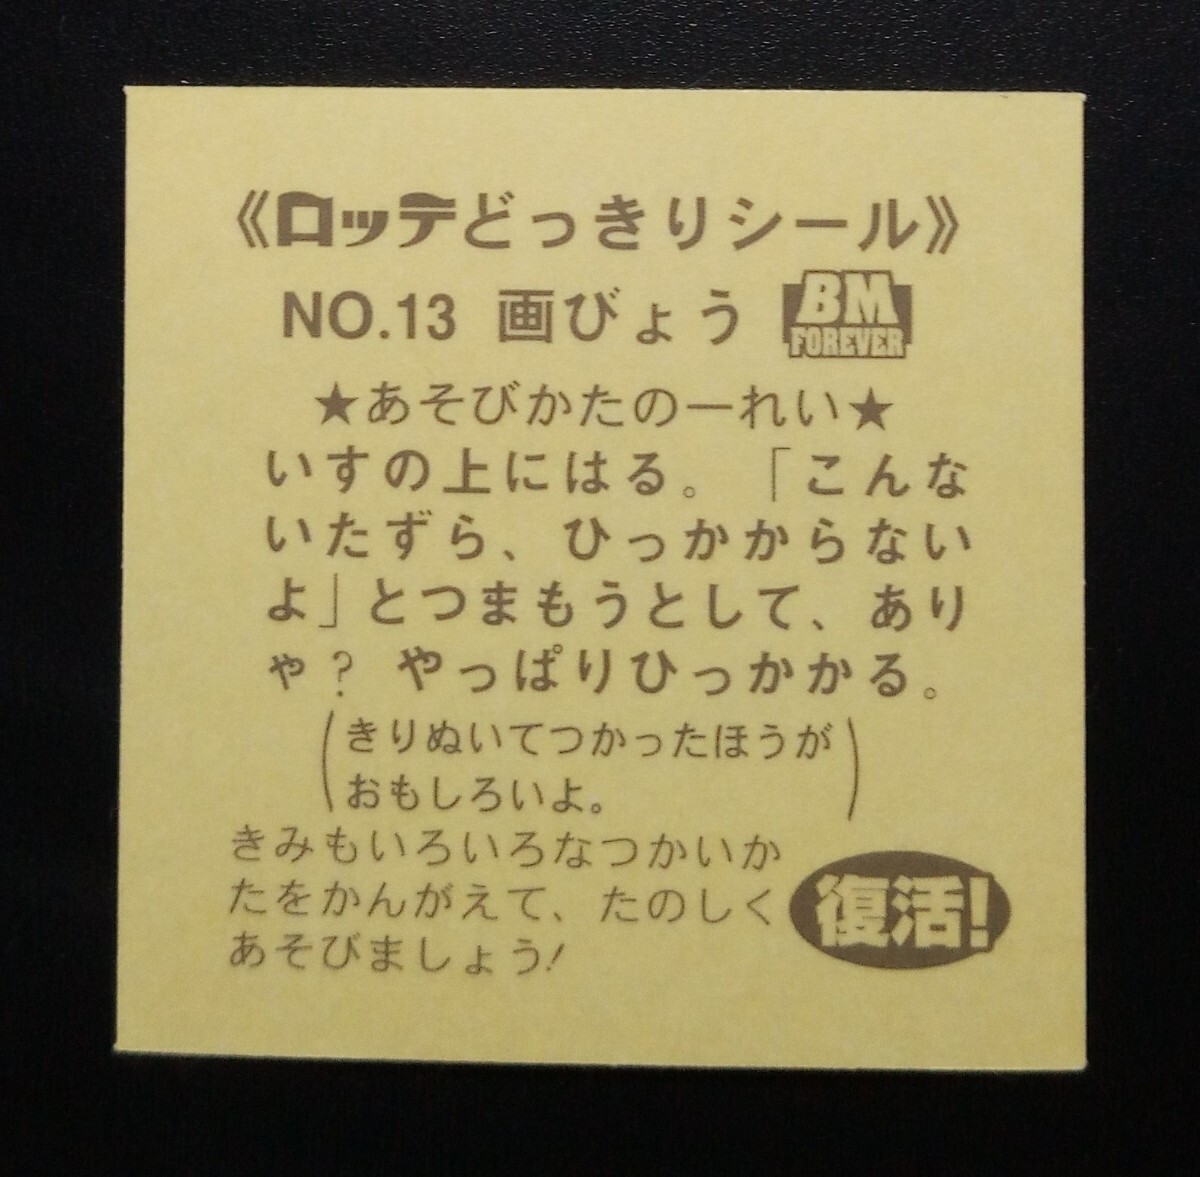 《ロッテどっきりシール》
NO.13 画びょう BM FOREVER
★あそびかたの一れい★
いすの上にはる。「こんな
いたずら、ひっかからない
よ」とつまもうとして、あり
ゃ? やっぱりひっかかる。
(きりぬいてつかったほうが
おもしろいよ。)
きみもいろいろなつかいか
たをかんがえて、たのしく
あそびましょう!
復活!